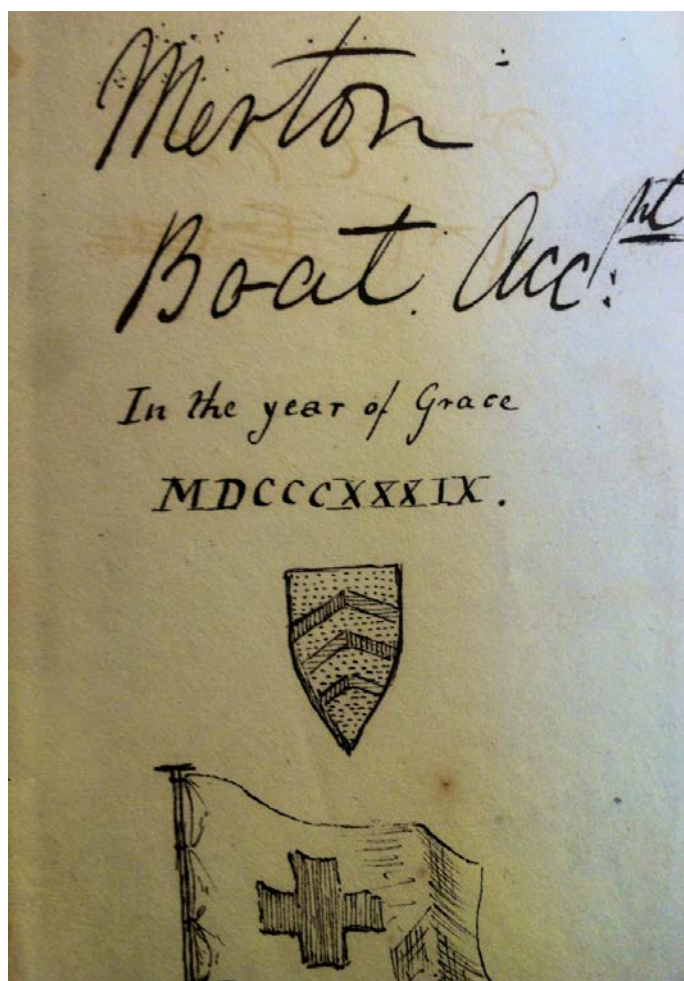 Merton
Boat. Acc:nt
In the year of Grace
MDCCCXXXIX.